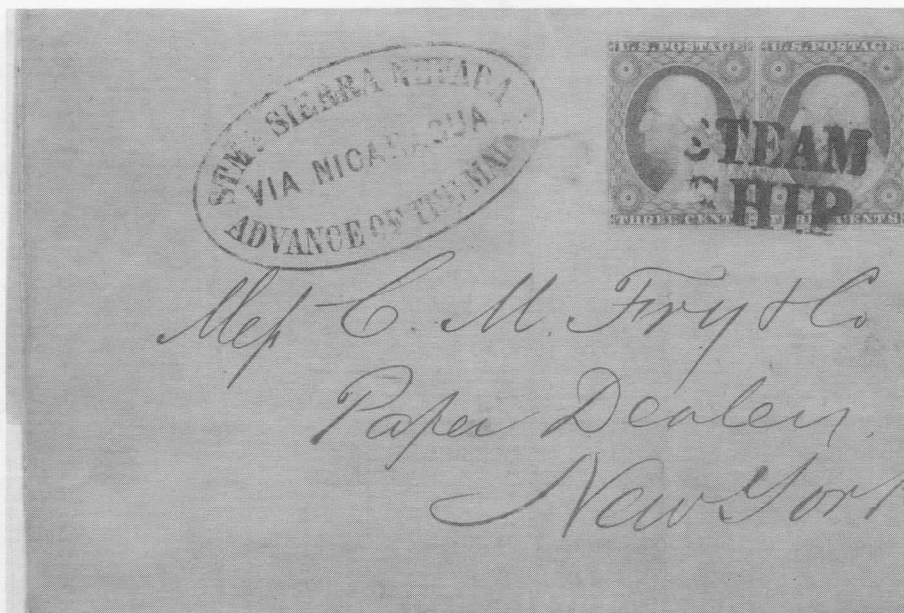 STMR SIERRA NEVADA
VIA NICARAGUA
ADVANCE OF THE MAILS
U.S. POSTAGE U.S. POSTAGE
STEAM
SHIP
THREE CENTS THREE CENTS
Mess C. M. Fry & Co
Paper Dealers.
New York